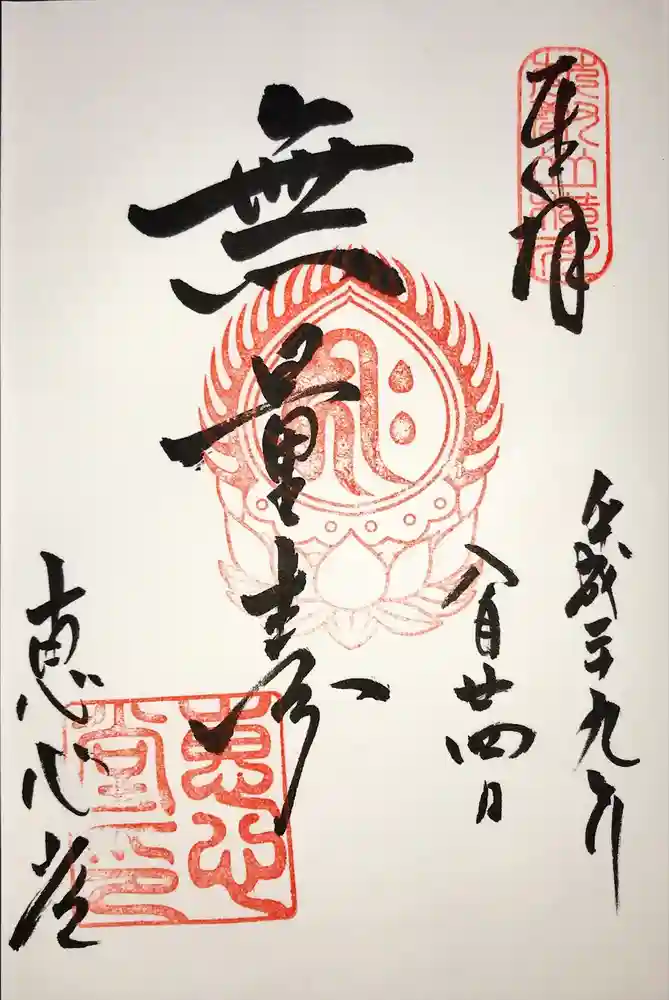 奉拝
平成二十九年
八月廿四日
無量寿
恵心堂
惠心堂印